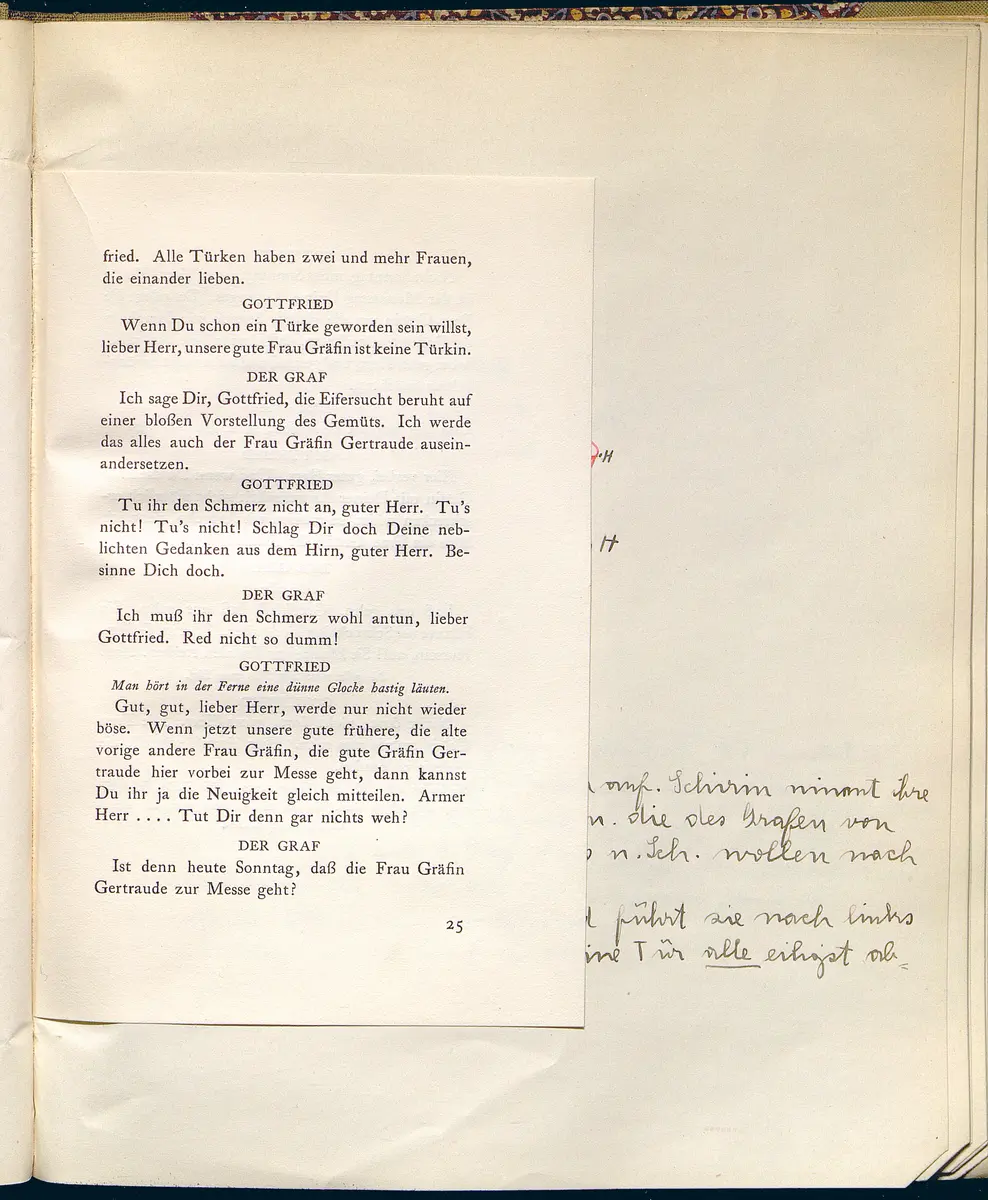 fried. Alle Türken haben zwei und mehr Frauen,
die einander lieben.
GOTTFRIED
Wenn Du schon ein Türke geworden sein willst,
lieber Herr, unsere gute Frau Gräfin ist keine Türkin.
DER GRAF
Ich sage Dir, Gottfried, die Eifersucht beruht auf
einer bloßen Vorstellung des Gemüts. Ich werde
das alles auch der Frau Gräfin Gertraude ausein-
andersetzen.
GOTTFRIED
Tu ihr den Schmerz nicht an, guter Herr. Tu's
nicht! Tu's nicht! Schlag Dir doch Deine neb-
lichten Gedanken aus dem Hirn, guter Herr. Be-
sinne Dich doch.
DER GRAF
Ich muß ihr den Schmerz wohl antun, lieber
Gottfried. Red nicht so dumm!
GOTTFRIED
Man hört in der Ferne eine dünne Glocke hastig läuten.
Gut, gut, lieber Herr, werde nur nicht wieder
böse. Wenn jetzt unsere gute frühere, die alte
vorige andere Frau Gräfin, die gute Gräfin Ger-
traude hier vorbei zur Messe geht, dann kannst
Du ihr ja die Neuigkeit gleich mitteilen. Armer
Herr .... Tut Dir denn gar nichts weh?
DER GRAF
Ist denn heute Sonntag, daß die Frau Gräfin
Gertraude zur Messe geht?
25
H
H
auf. Schirin nimmt ihre
die des Grafen von
u. Sch. wollen nach
führt sie nach links
Tür alle eiligst ab